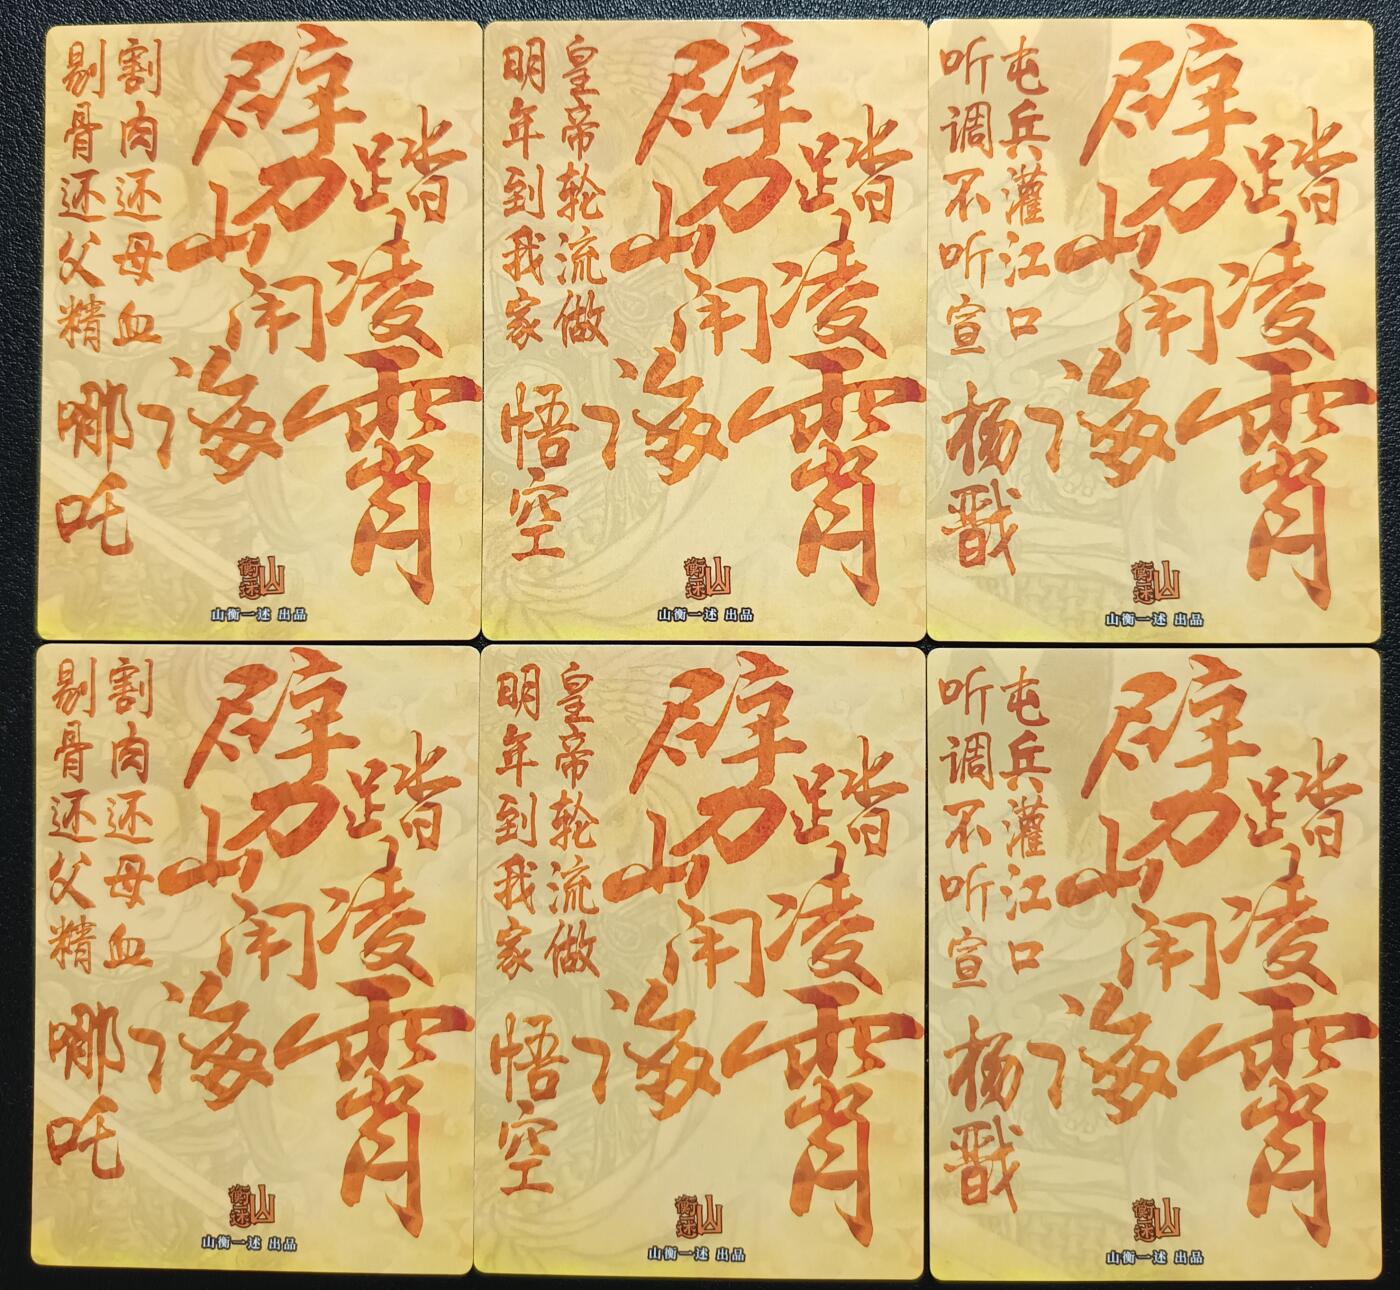 劈山
闹海
踏凌霄
割肉还母血
剔骨还父精
哪吒
山衡一述
山衡一述 出品
劈山
闹海
踏凌霄
皇帝轮流做
明年到我家
悟空
山衡一述
山衡一述 出品
劈山
闹海
踏凌霄
屯兵灌江口
听调不听宣
杨戬
山衡一述
山衡一述 出品
劈山
闹海
踏凌霄
割肉还母血
剔骨还父精
哪吒
山衡一述
山衡一述 出品
劈山
闹海
踏凌霄
皇帝轮流做
明年到我家
悟空
山衡一述
山衡一述 出品
劈山
闹海
踏凌霄
屯兵灌江口
听调不听宣
杨戬
山衡一述
山衡一述 出品